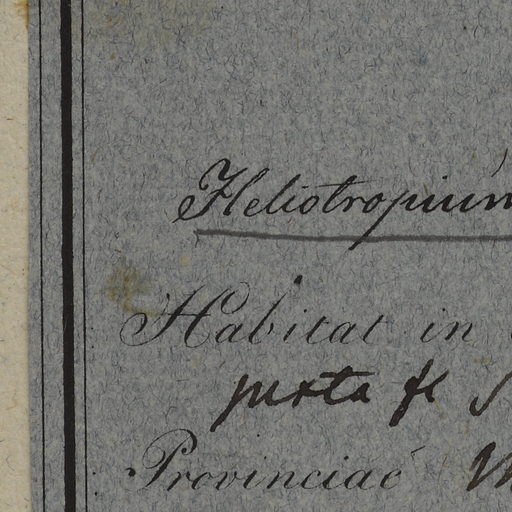 Heliotropium
Habitat in
juxta fl
Provinciae